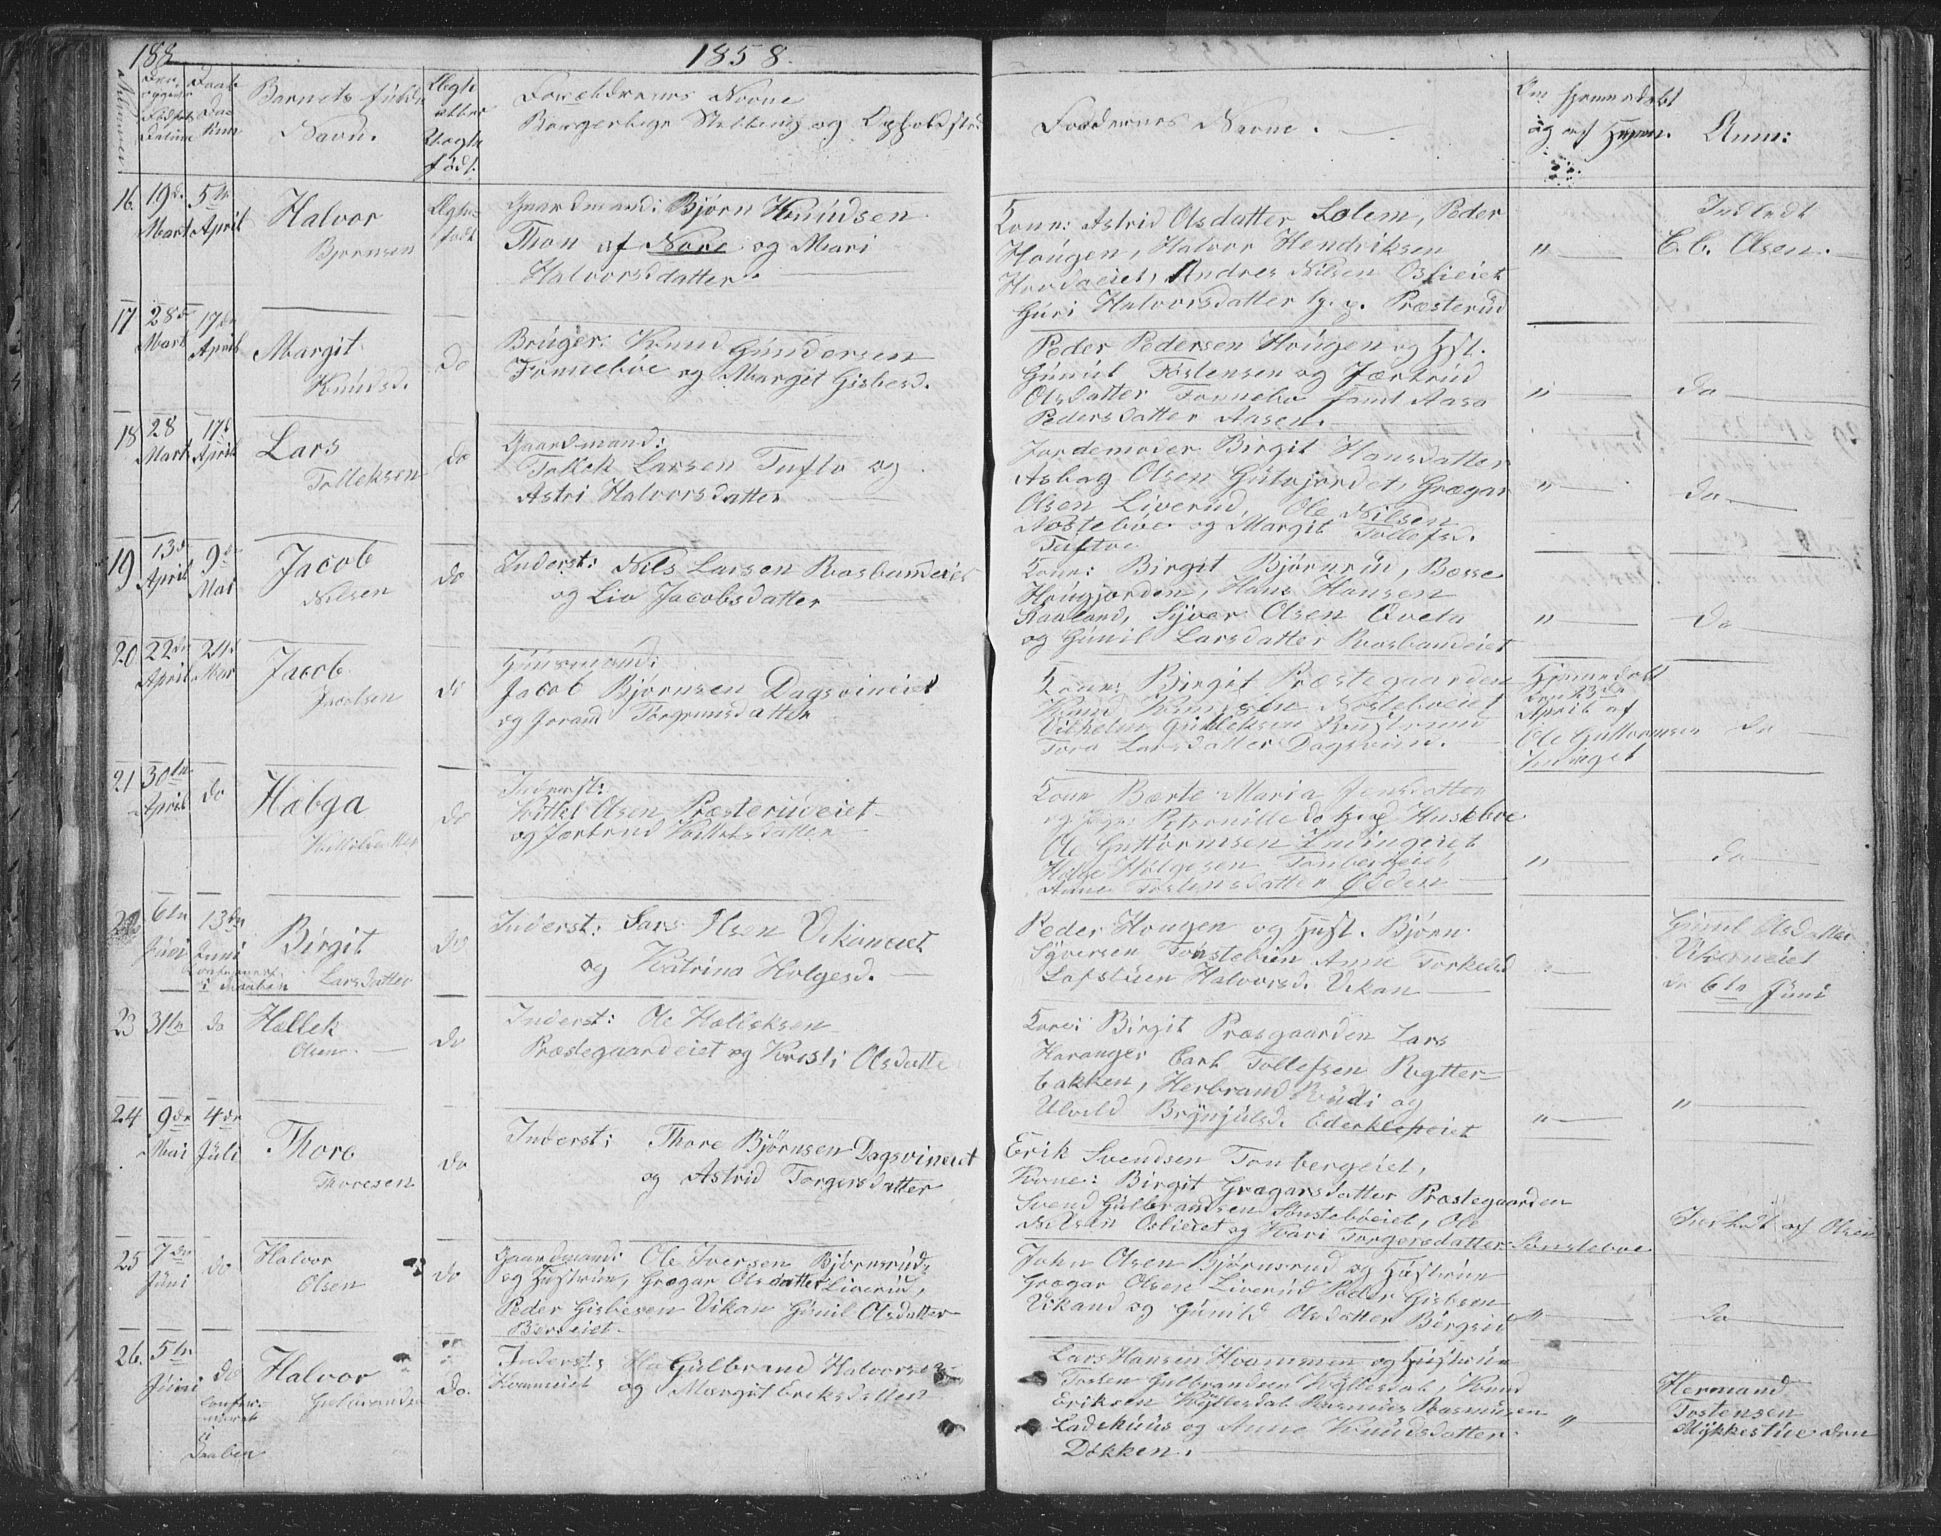 188
1858.
Barnets fulde
Navn.
Forældrenes Navne
Borgerlige Stilling og Opholdsted
Faddernes Navne.
Om hjemmedøbt
og af Hvem.
Anm:
16. 19de Mart 5te April
Halvor
Bjørnsen
Gaardmand: Bjørn Knudsen
Thon af Nore og Mari
Halvorsdatter.
Kone: Astrid Olsdatter Solem, Peder
Hougen, Halvor Hendriksen
Hovdaeiet, Andres Nilsen Oslieiet
Guri Halvorsdatter Præsterud
"
C. C. Olsen.
17 28de Mart 17de April
Margit
Knudsd.
do
Bruger: Knud Gundersen
Fonnebøe og Margit Gisbesd.
Peder Pedersen Hougen og Hst.
Gunul Tostensen og Jærtrud
Olsdatter Fonnebø samt Aasa
Pedersdatter Aasen.
"
do
18 28 Mart 17de April
Lars
Tolleksen
do
Gaardmand:
Larsen Tufto og
Astri Halvorsdatter
Jordemoder Birgit Hansdatter
Asbag Olsen Gulvjordet, Grægar
Olsen Liverud, Ole Nilsen
Nøstebøe og Margit Tollefsd.
Tuftoe
"
do
19 13de April 9de Mai
Jacob
Nilsen
do
Inderst: Nils Larsen Rosbandeiet
og Liv Jacobsdatter
Kone: Birgit Bjørnrud, Bæsse
Hougjorden, Hans Hansen
Raaland, Syver Olsen Qveta
og Gunil Larsdatter Rosbandeiet
"
do
20 22de April 24de Mai
Jacob
Jacobsen
do
Huusmand:
Jacob Bjørnsen Dagsvineiet
og Jorand Torgrimsdatter
Kone: Birgit Præstegaarden
Knud Nøstebøeiet
Vilhelm Gulleksen
Tora Larsdatter Dagsvin.
Hjemmedøbt
den 23de
April af
Ole Guttormsen
do
21 30te April do
Hæbga
Kittelsdatter
do
Inderst:
Kittel Olsen Præsterudeiet
og Jærtrud Kittelsdatter
Kone Bærte Maria Jensdatter
Peternille Husebøe
Ole Guttormsen
Helge Helgesen Tonbergeiet
Anne Tostensdatter
"
do
22 6te Juni 13de Juni
Birgit
Larsdatter
do
Inderst: Lars Olsen Vikaneiet
og Katrina Helgesd.
Peder Hougen og Hust. Bjørn
Syversen Tønstebien Anne Torkedd
Lofstuen Halvorsd. Vikan
Gunil Olsdatter
Vikaneiet
den 6te Juni
23 31te do
Hellek
Olsen
do
Inderst: Ole Helleksen
Præstegaardeiet og Kristi Olsdatte
Kone: Birgit Præsgaarden Lars
Haranger Carl Tollefsen Rytter-
bakken, Herbrand Rudi og
Ulvild Brynjulsd. Ederklepeiet
"
"
24 9de Mai 4de Juli
Thore
Thoresen
do
Inderst: Thore Bjørnsen Dagsvineiet
og Astrid Torgersdatter
Erik Svendsen Tonbergeiet,
Kone: Birgit Grægarsdatter Præstegaarden
Svend Gulbrandsen Sønstebøeiet, Ole
Nilsen Oslieiet og Kari Torgersdatter Sønstebøe
Indledt af Olsen
25 7de Juni do
Halvor
Olsen
do
Gaardmand: Ole Iversen Bjørnsrud,
og Hustrue, Grægar Olsdatter Liverud,
Peder Gisbesen Vikan Gunil Olsdatter
Berseiet.
John Olsen Bjørnsrud og Hustrue
Grægar Olsen Liverud Peder Gisbsen
Vikand og Gunild Olsdatter Bergseid
"
do
26. 5te Juni do
i
Daaben
Halvor
Gulbrandsen
do.
Inderst: Gulbrand Halvorsen
og Margit Eriksdatter
Lars Hansen Hvammen og Hustrue
Tosten Gulbrandsen Kyttesdal, Knud
Eriksen Kyttesdal Rasmus Rasmusen
Ladehuus og Anne Knudsdatter
Dokken.
"
Hermand
Tostensen
Mykkestue den